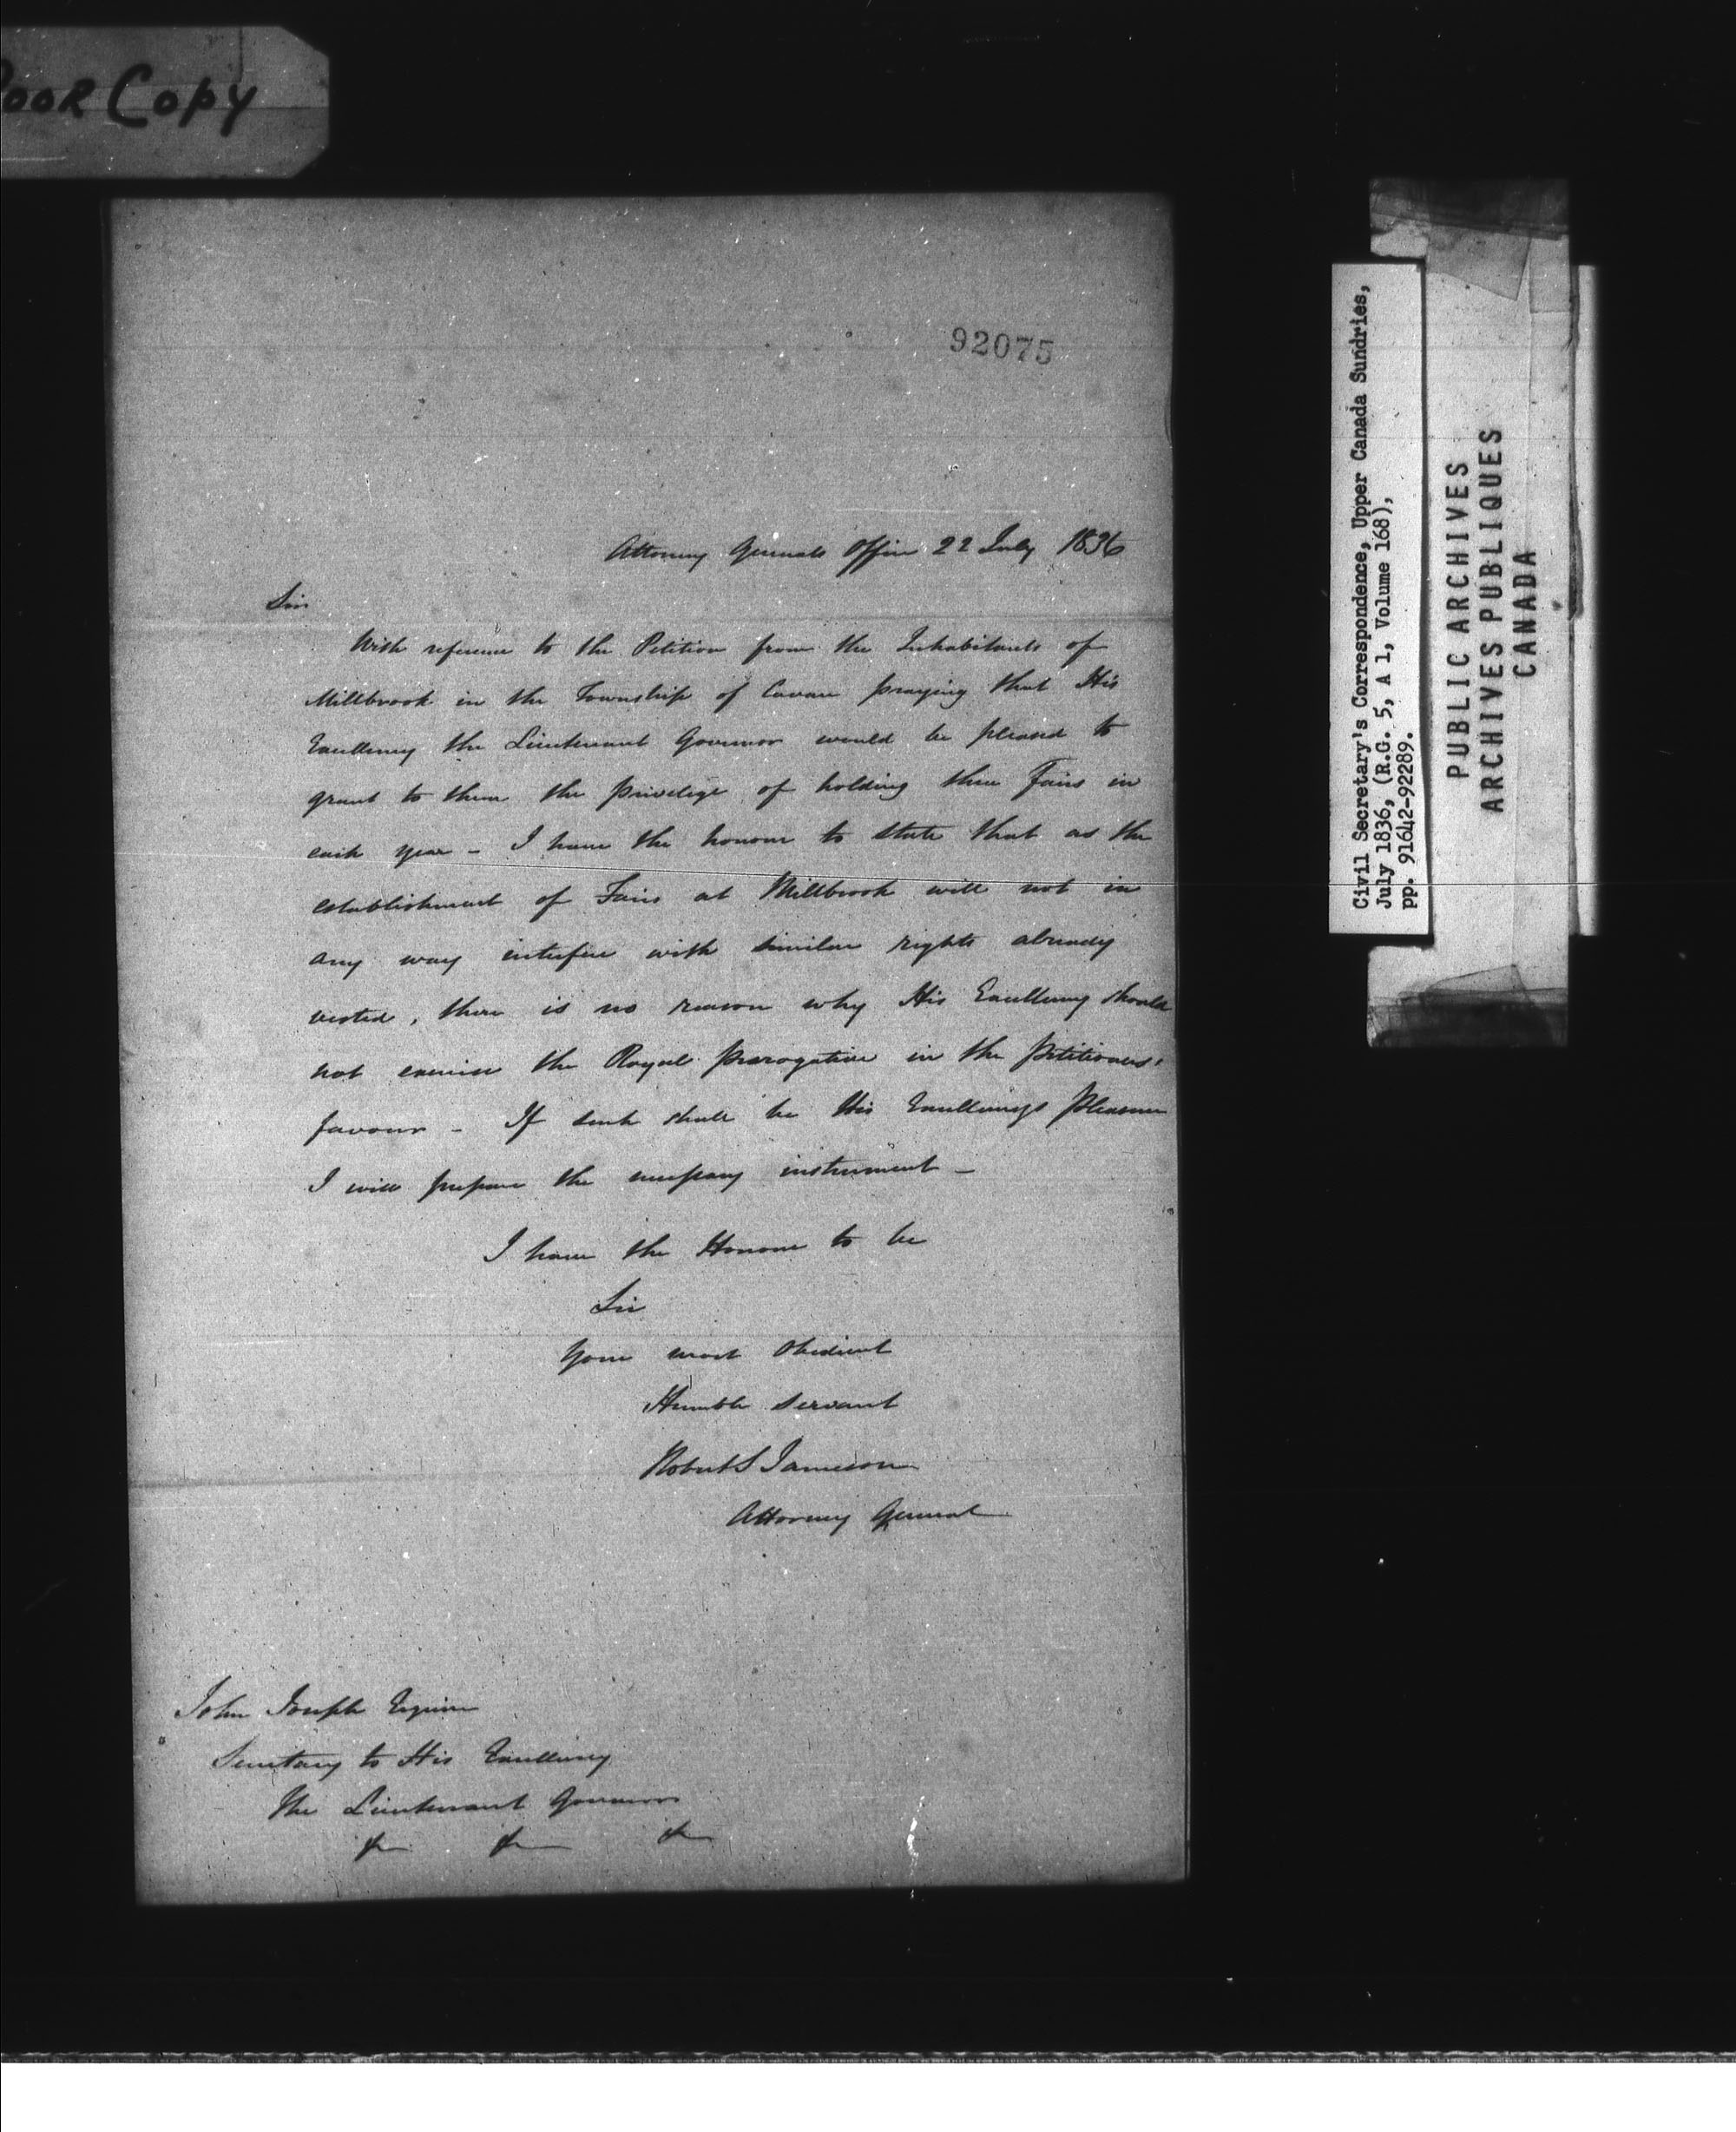 Poor Copy
92075
Attorney Generals Office 22 July 1836
Sir
With reference to the Petition from the Inhabitants of
Millbrook in the Township of Cavan praying that His
Excellency the Lieutenant Governor would be pleased to
grant to them the privilege of holding three Fairs in
each year - I have the honour to state that as the
establishment of Fairs at Millbrook will not in
any way interfere with similar rights already
vested, there is no reason why His Excellency should
not exercise the Royal prerogative in the petitioners'
favour - If such shall be His Excellencys pleasure
I will prepare the necessary instrument -
I have the Honour to be
Sir
Your most obedient
Humble servant
Robert S Jameson
Attorney General
John Joseph Esquire
Secretary to His Excellency
The Lieutenant Governor
&c &c &c
Civil Secretary's Correspondence, Upper Canada Sundries,
July 1836, (R.G. 5, A 1, Volume 168),
pp. 91642-92289.
PUBLIC ARCHIVES
ARCHIVES PUBLIQUES
CANADA